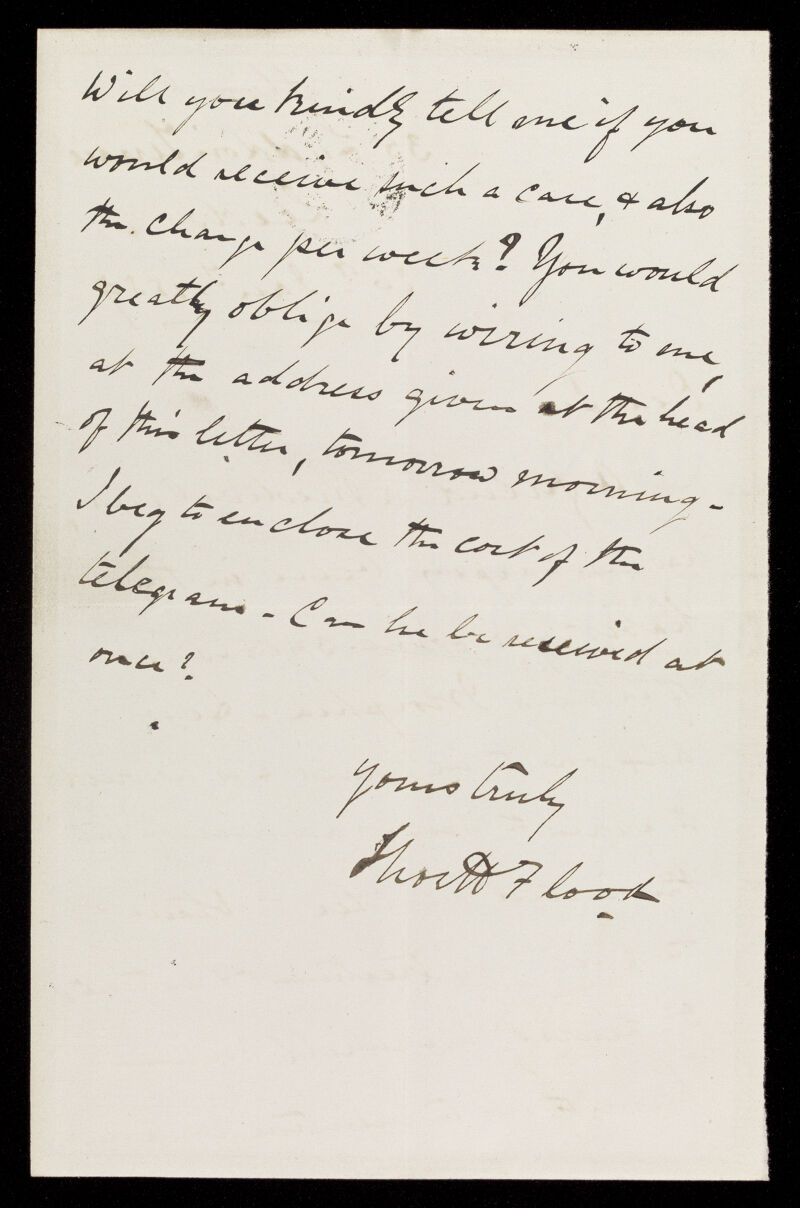 Will you kindly tell me if you
would receive such a case, & also
the charge per week? You would
greatly oblige by wiring to me,
at the address given at the head
of this letter, tomorrow morning -
I beg to enclose the cost of the
telegram - Can he be received at
once?
Yours truly
Thos H Flood